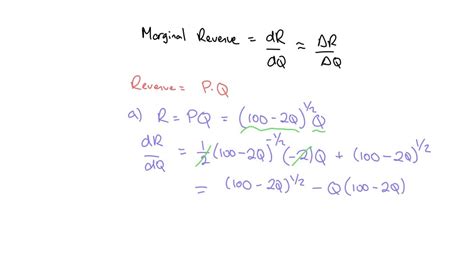 Marginal Revenue = dR/dQ ≈ ΔR/ΔQ
Revenue = P.Q
a) R = PQ = (100-2Q)^1/2 Q
dR/dQ = 1/2 (100-2Q)^-1/2 (-2)Q + (100-2Q)^1/2
= (100-2Q)^1/2 - Q(100-2Q)